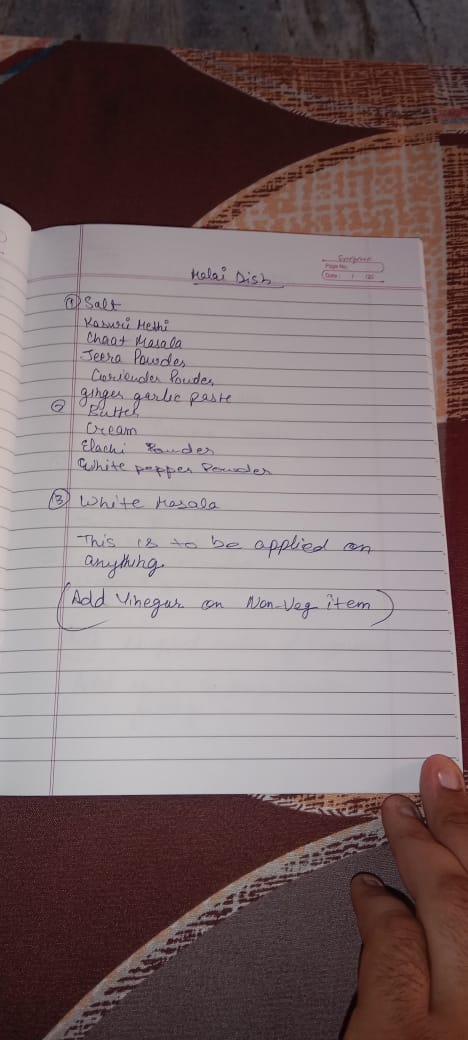 Evergreen
Page No.
Date: / /20
Malai Dish
① Salt
Kasuri Methi
Chaat Masala
Jeera Powder
Coriender Powder
ginger garlic paste
② Butter
Cream
Elachi Powder
White pepper Powder
③ White Masala
This is to be applied on
anything.
(Add Vinegar on Non-Veg item)